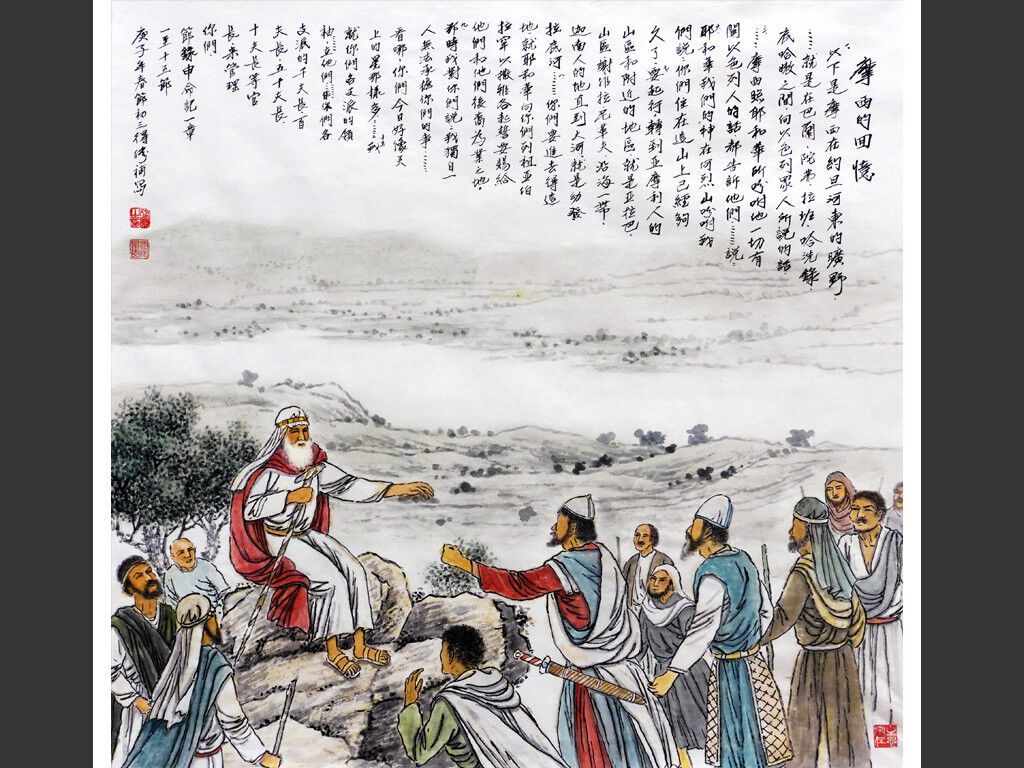 摩西的回憶
以下是摩西在約旦河東的曠野,
……就是在巴蘭、陀弗、拉班、哈洗錄、
底哈撒之間,向以色列眾人所說的話
……摩西照耶和華所吩咐他一切有
關以色列人的話都告訴他們……說:
耶和華我們的神在何烈山吩咐我
們說:你們住在這山上已經夠
久了,要起行,轉到亞摩利人的
山區和附近的地區就是亞拉巴、
山區、謝非拉、尼革夫、沿海一帶、
迦南人的地直到大河就是幼發
拉底河……你們要進去得這
地就耶和華向你們列祖亞伯
拉罕以撒雅各起誓要賜給
他們和他們後裔為業之地。
那時我對你們說:我獨自一
人無法承擔你們的事……
看哪,你們今日好像天
上的星那樣多……我
就你們各支派的領
袖……立他們……你們各
支派的千夫長、百
夫長、五十夫長、
十夫長等官
長來管理
你們
節錄申命記一章
一至十三節
庚子年春節初三